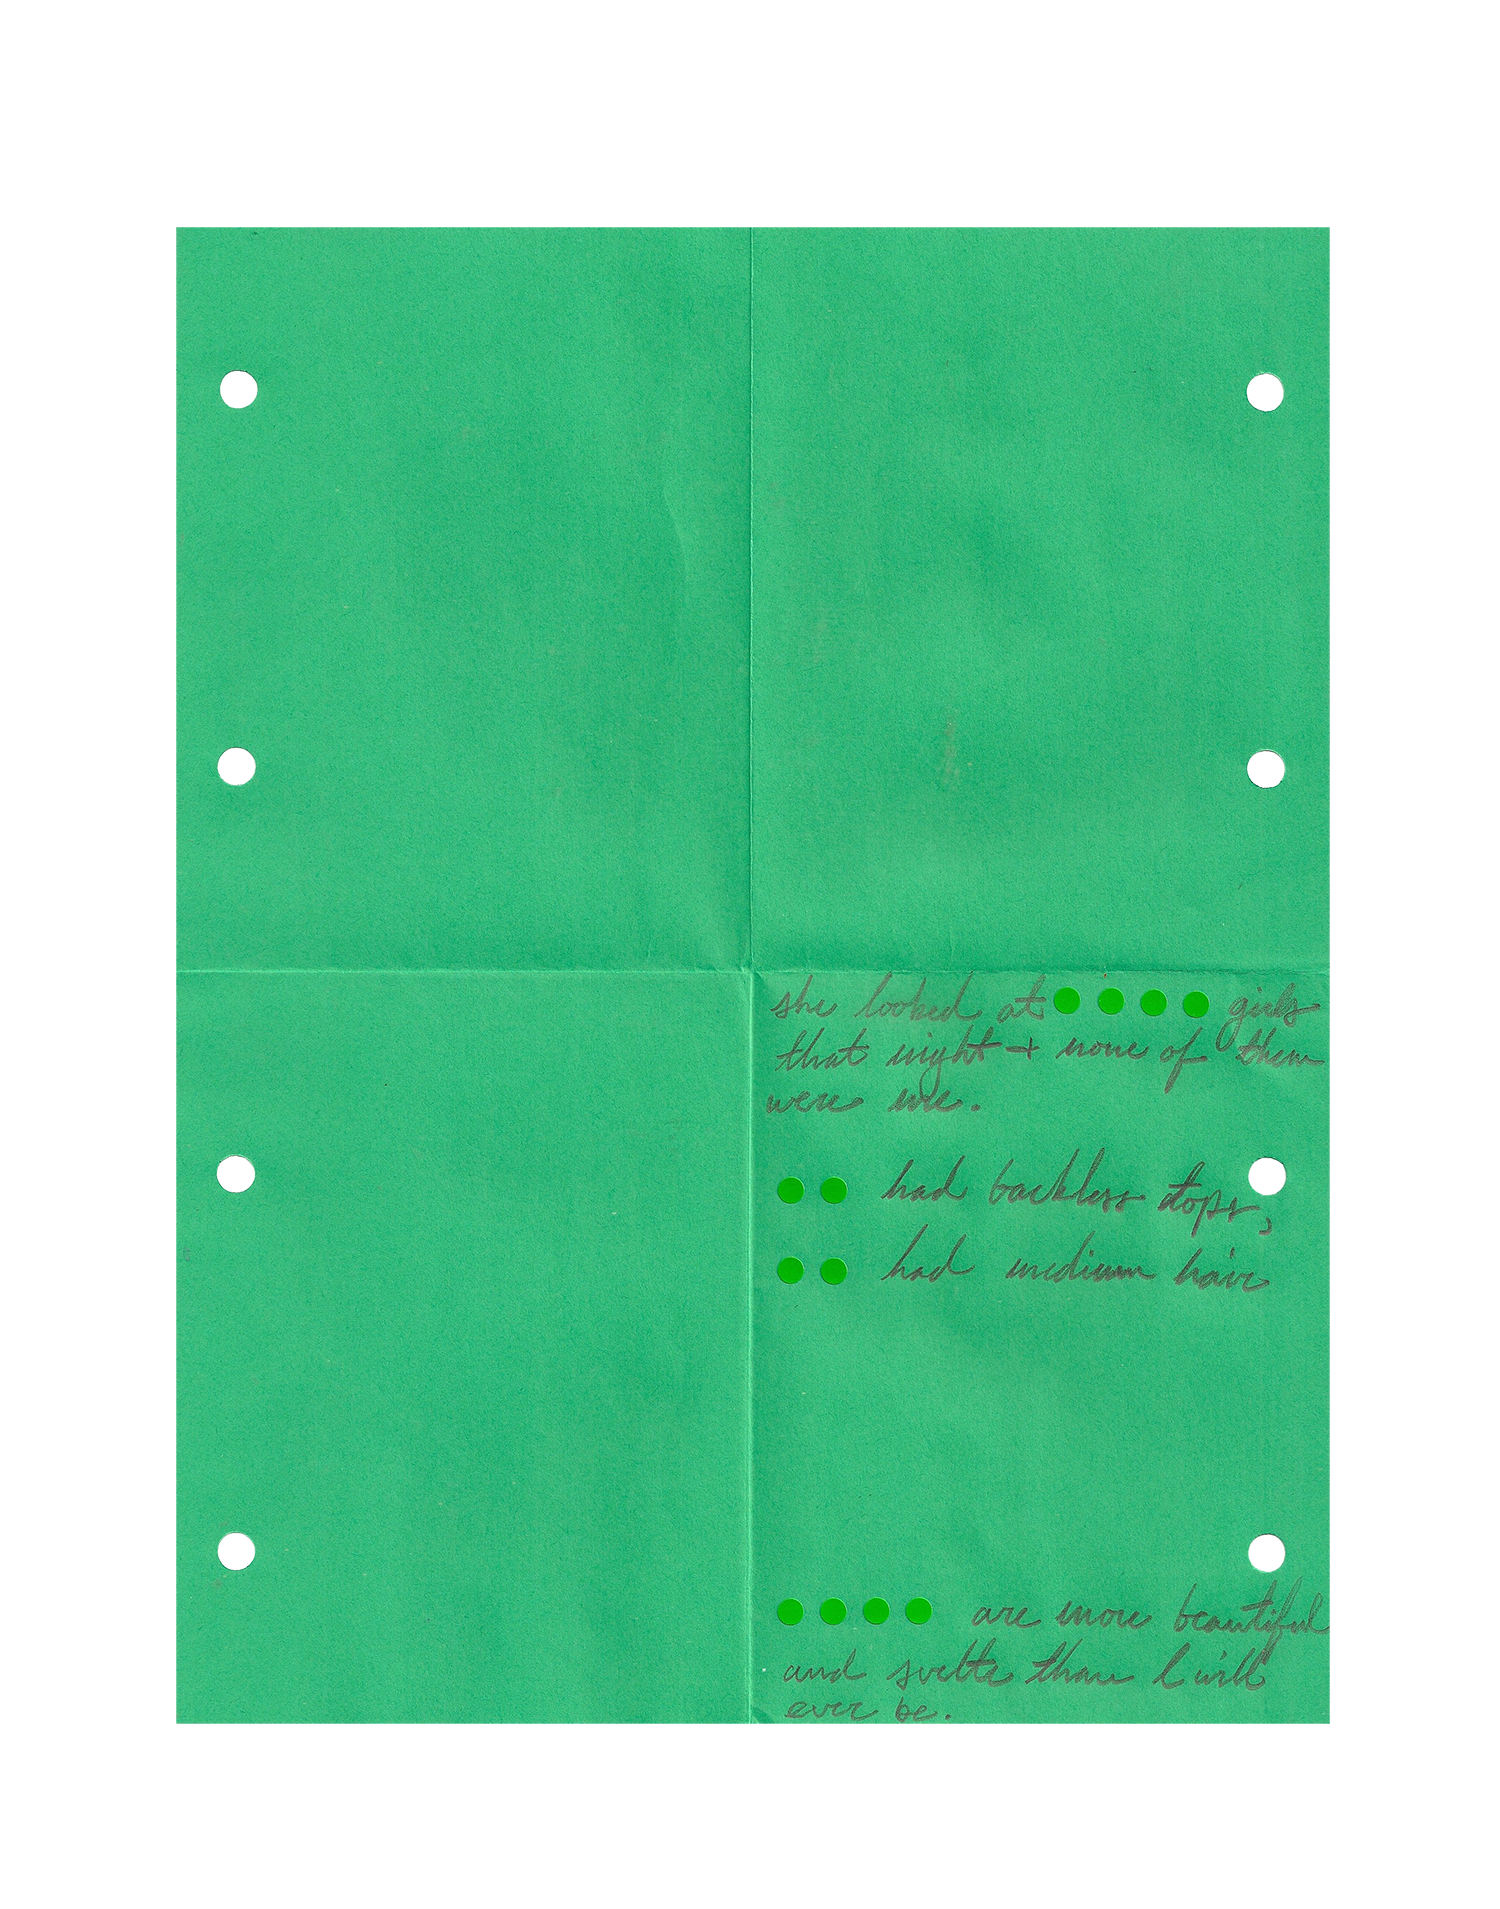 she looked at girls
that night + none of them
were me.
had backless tops,
had medium hair
are more beautiful
and svelte than I will
ever be.